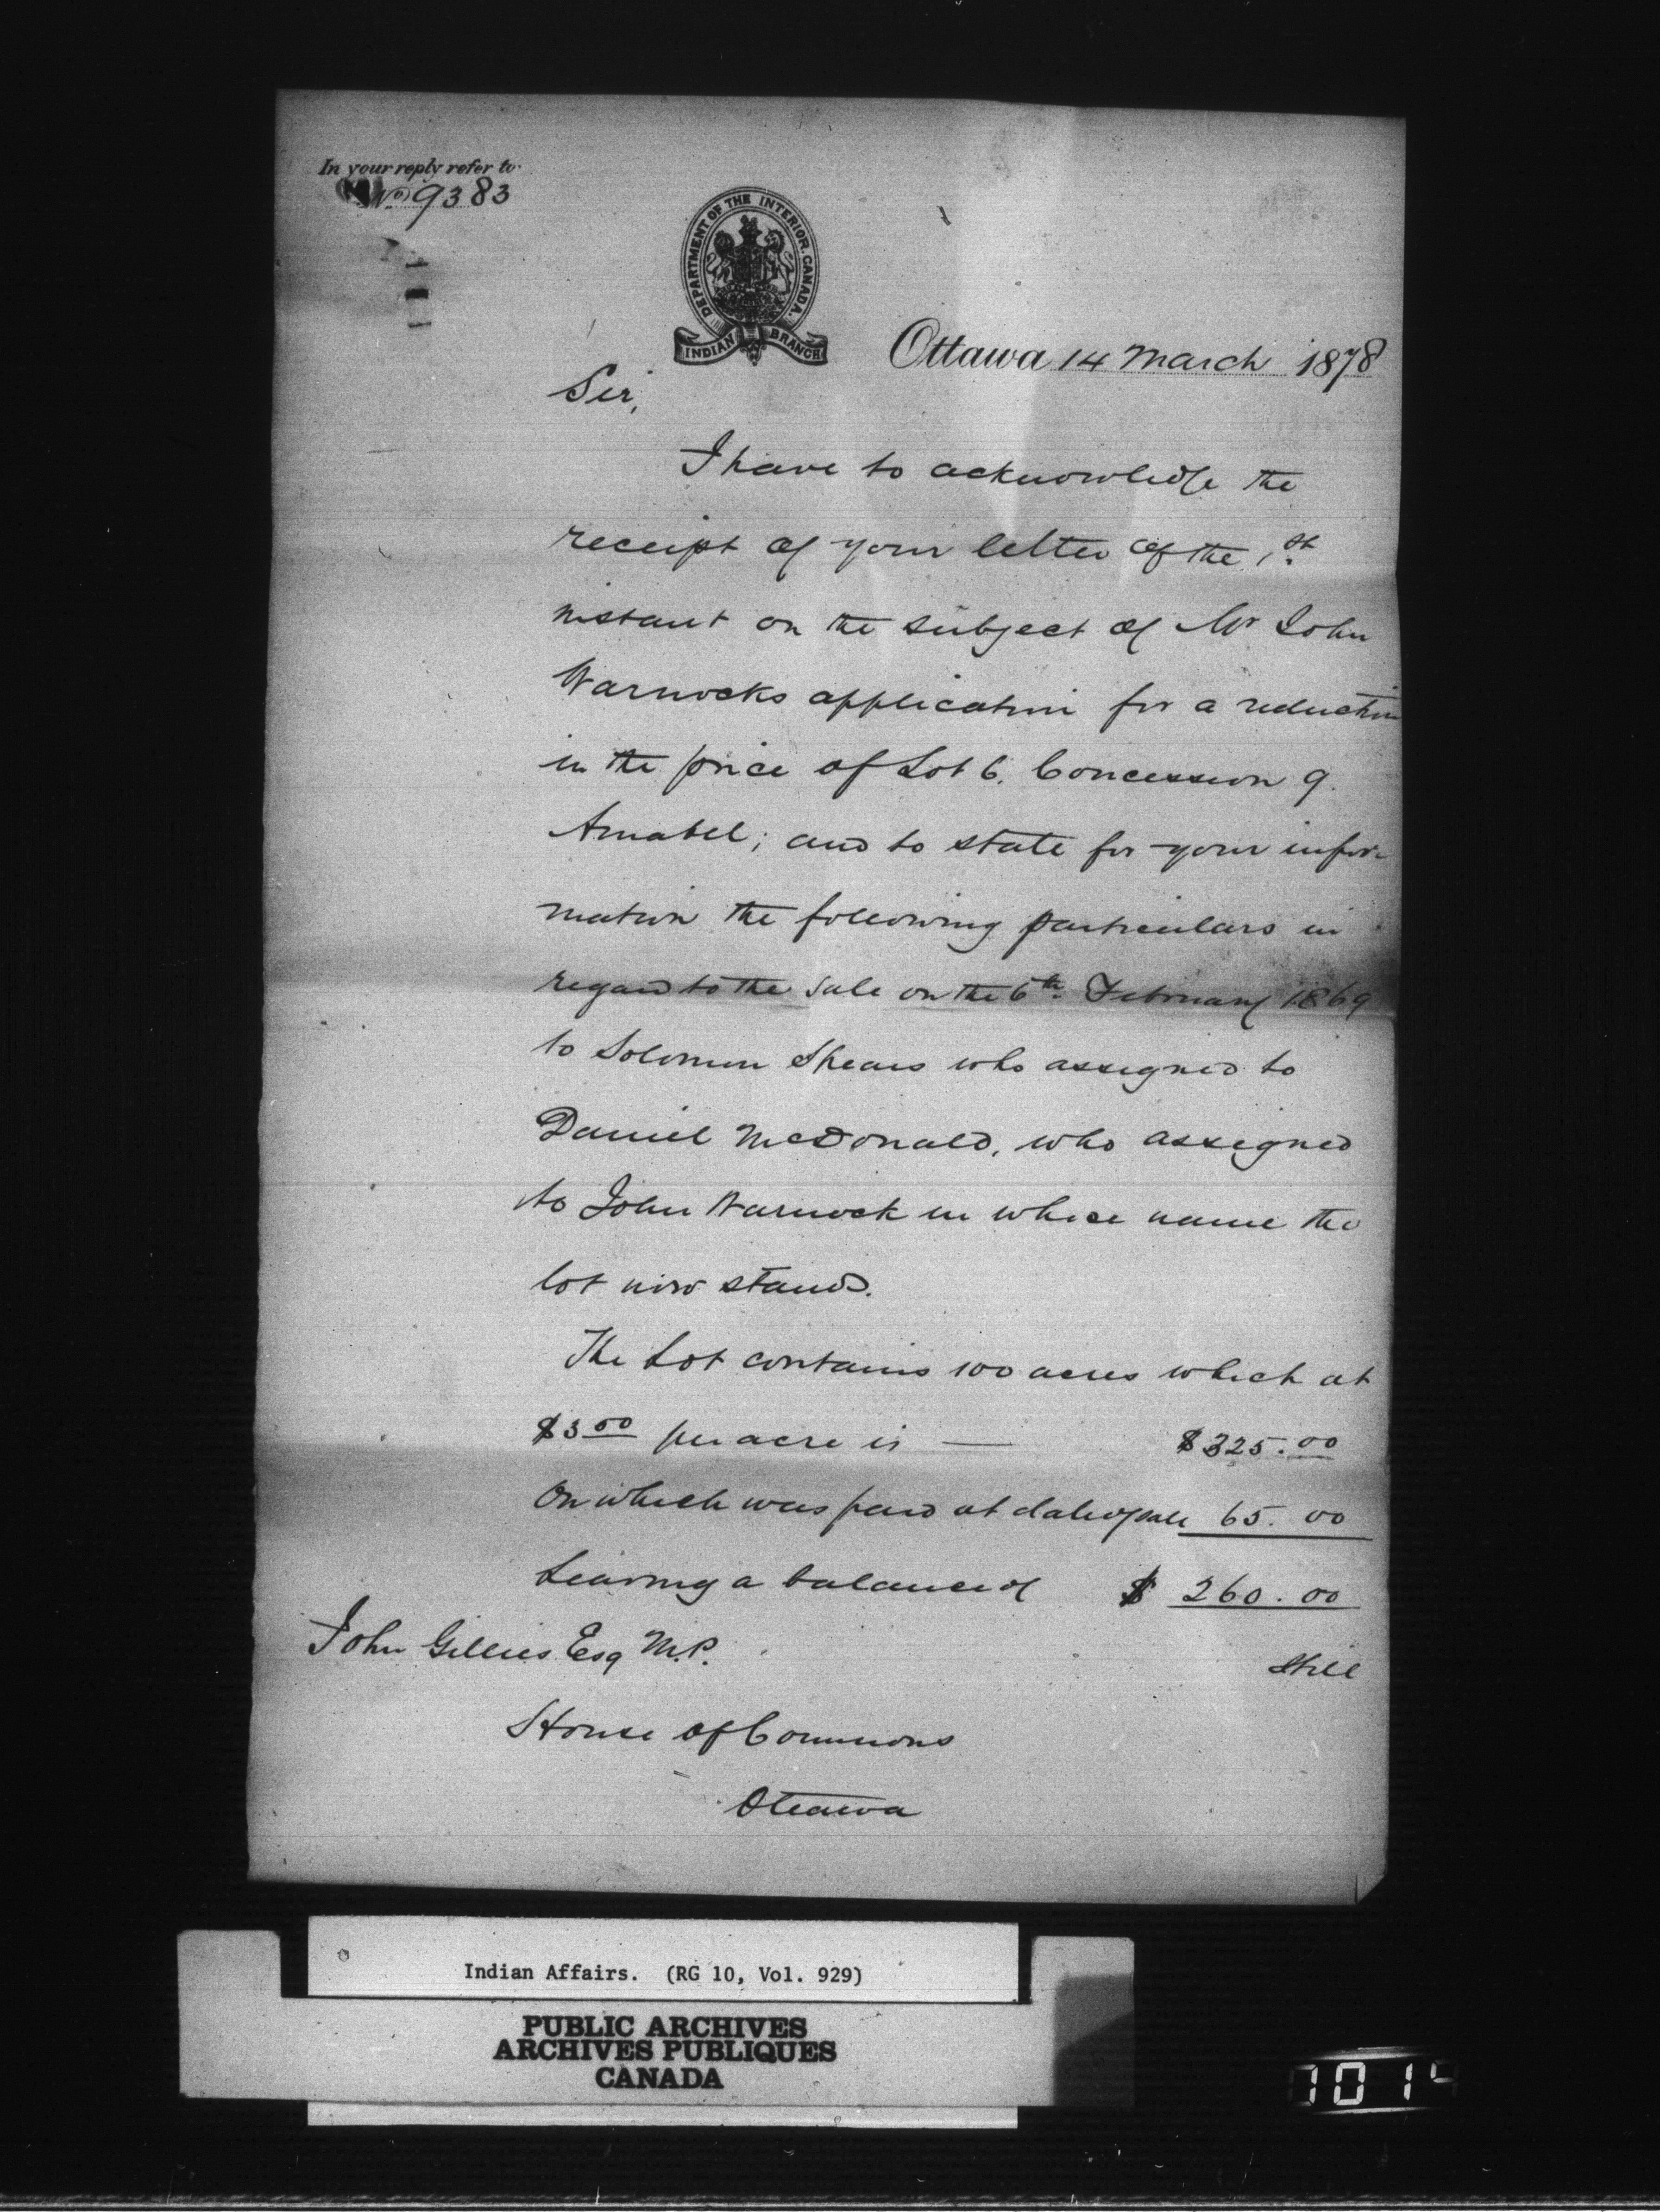 In your reply refer to
No 9383
DEPARTMENT OF THE INTERIOR. CANADA.
INDIAN BRANCH
Ottawa 14 March 1878
Sir,
I have to acknowledge the
receipt of your letter of the 1st
instant on the subject of Mr John
Warnocks application for a reduction
in the price of Lot 6. Concession 9.
Amabel; and to state for your infor-
mation the following particulars in
regard to the sale on the 6th February 1869
to Solomon Spears who assigned to
Daniel McDonald, who assigned
to John Warnock in whose name the
lot now stands.
The Lot contains 100 acres which at
$3 per acre is — $325.00
On which was paid at date of sale 65.00
Leaving a balance of $ 260.00
Still
John Gillies Esq M.P.
House of Commons
Ottawa
Indian Affairs. (RG 10, Vol. 929)
PUBLIC ARCHIVES
ARCHIVES PUBLIQUES
CANADA